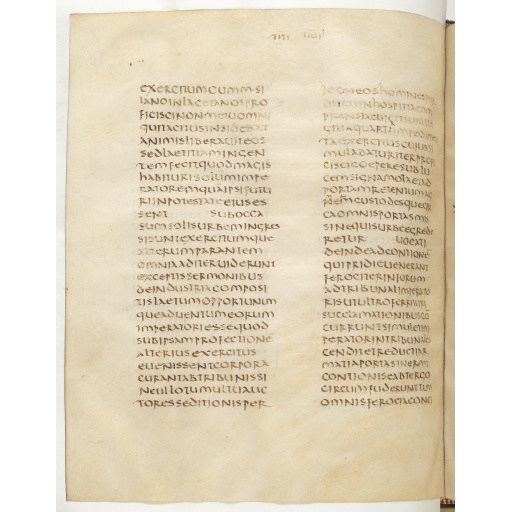 EXERCITUMCUMMSI
LANOINLACETANOSPRO
FICISCINONMETUOMNI
QUITACITUSINSIDEBAT
ANIMISLIBERAUITEOS
SEDLAETITIAMINGEN
TEMFECITQUODMAGIS
HABITUROSSOLUMIMPE
RATOREMQUAIPSIFUTU
RIINPOTESTATEEIUSES
SENT SUBOCCA
SUMSOLISURBEMINGRES
SISUNTEXERCITUMQUE
ALTERUMPARANTEM
OMNIAADITERUIDERUNT
EXCEPTISSERMONIBUS
DEINDUSTRIACOMPOSI
TISLAETUMOPPORTUNUM
QUEADUENTUMEORUM
IMPERATORIESSEQUOD
SUBIPSAMPROFECTIONE
ALTERIUSEXERCITUS
EUENISSENTCORPORA
CURANTABTRIBUNISSI
NEULLOTUMULTUAUC
TORESSEDITIONISPER
IDONEOSHOMINESPER
QUARTA
CISCICOEPERESUBLU
CEMSIGNAMOTAETAD
PORTAMRETENTUMAC
CAOMNISPORTASMIS
SINEQUISURBEEGREDE
RETUR UOCATI
DEINDEADCONTIONE
QUIPRIDIEUENERANT
FEROCITERINFORUM
ADTRIBUNALIMPERATO
SUCCLAMATIONIBUSCO
CURRUNTSIMULETIM
PERATORINTRIBUNALES
CENDITETREDUCTIAR
MATIAPORTASINERMI
CONTIONISEABTERGO
CIRCUMFUDERUNTTUM
OMNISFEROCIACONCI